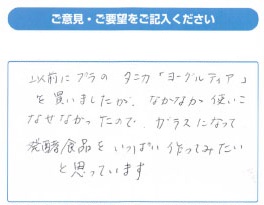 ご意見・ご要望をご記入ください
以前にプラの タニカ「ヨーグルティア」
を買いましたが、なかなか使いこ
なせなかったので、ガラスになって
発酵食品をいっぱい作ってみたい
と思っています